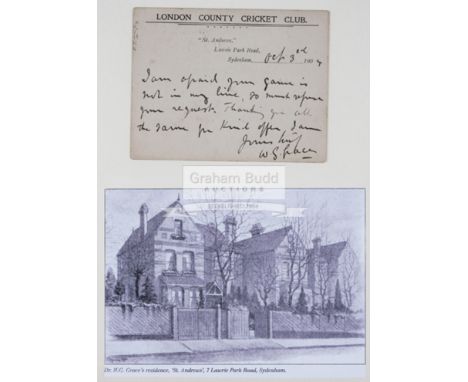 LONDON COUNTY CRICKET CLUB.
"St. Andrews,"
Lawrie Park Road,
Sydenham, Oct 3rd 190
I am afraid your game is
not in my line, so must refuse
your request. Thanking you all
the same for kind offer, I am
Yours truly
W G Grace
Graham Budd
AUCTIONS
Dr. W.G. Grace's residence, 'St. Andrews', 7 Lawrie Park Road, Sydenham.